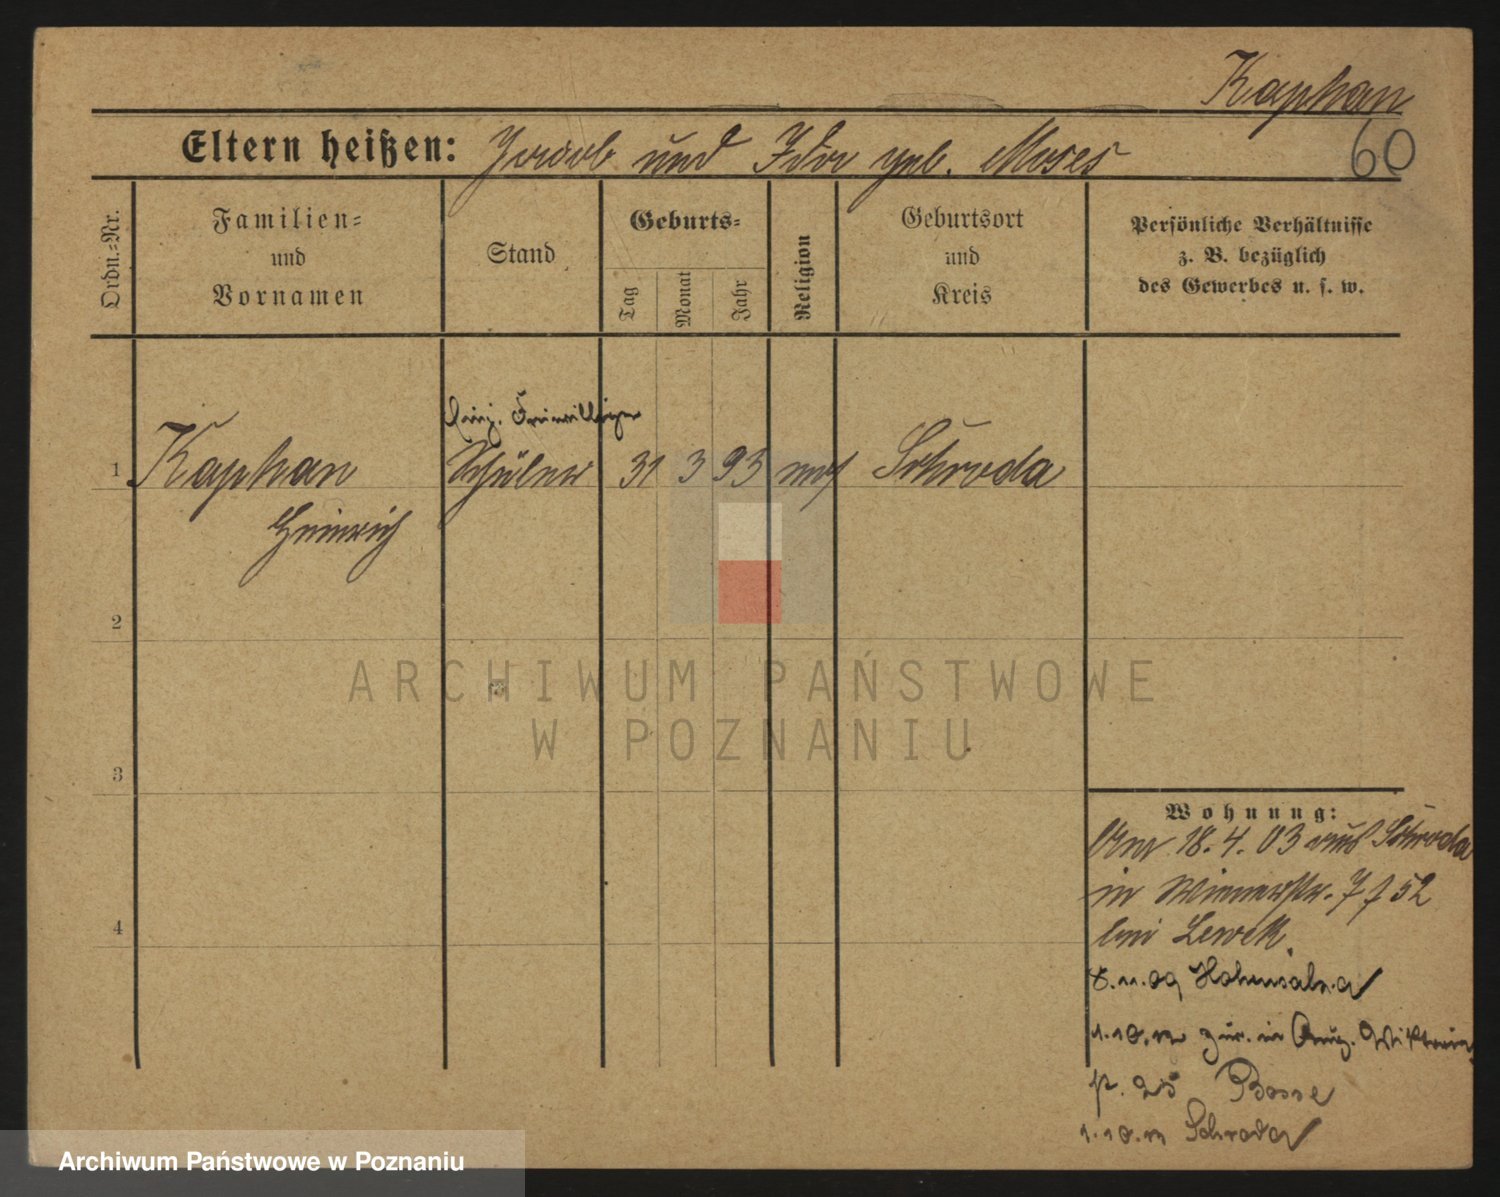 Kaphan
60
Eltern heißen: Jacob und Ida geb. Moses
Ordn.-Nr.
Familien-
und
Vornamen
Stand
Geburts-
Tag
Monat
Jahr
Religion
Geburtsort
und
Kreis
Persönliche Verhältnisse
z. B. bezüglich
des Gewerbes u. s. w.
Einj. Freiwilliger
1 Kaphan Schüler 31 3 93 mos Schroda
Heinrich
2
3
4
ARCHIWUM PAŃSTWOWE
W POZNANIU
Wohnung:
Am 18.4.03 aus Schroda
in Wienerstr. 7 52
bei Lewek.
8.11.09 Hohensalza
1.10. zur. in Aug. Viktoria
25 Bosse
1.10. Schroda
Archiwum Państwowe w Poznaniu